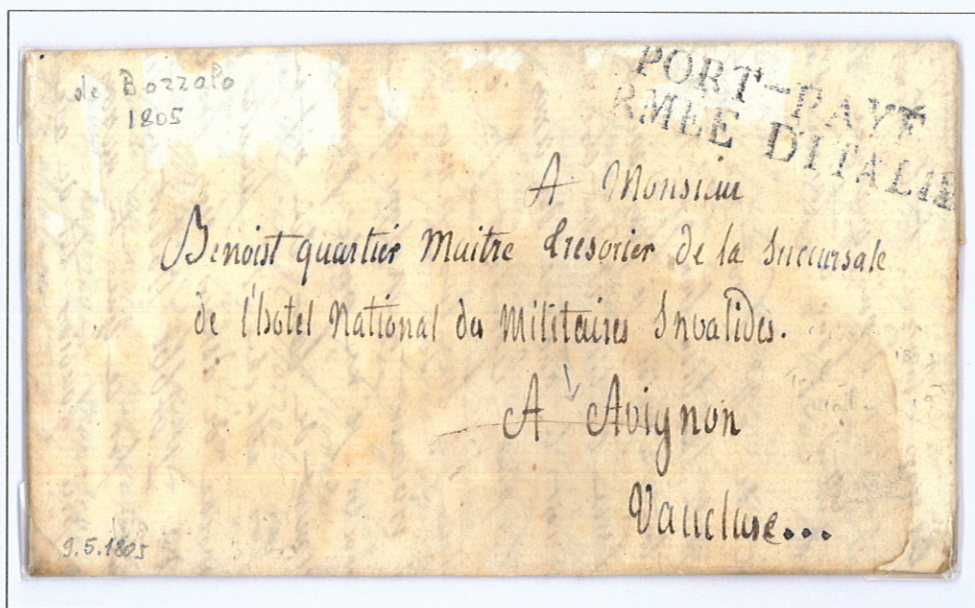 de Bozzolo
1805
PORT-PAYÉ
RMEE DITALIE
A Monsieur
Benoist quartier Maitre tresorier de la Succursale
de l'hotel National des Militaires Invalides.
A Avignon
Vaucluse...
9.5.1805